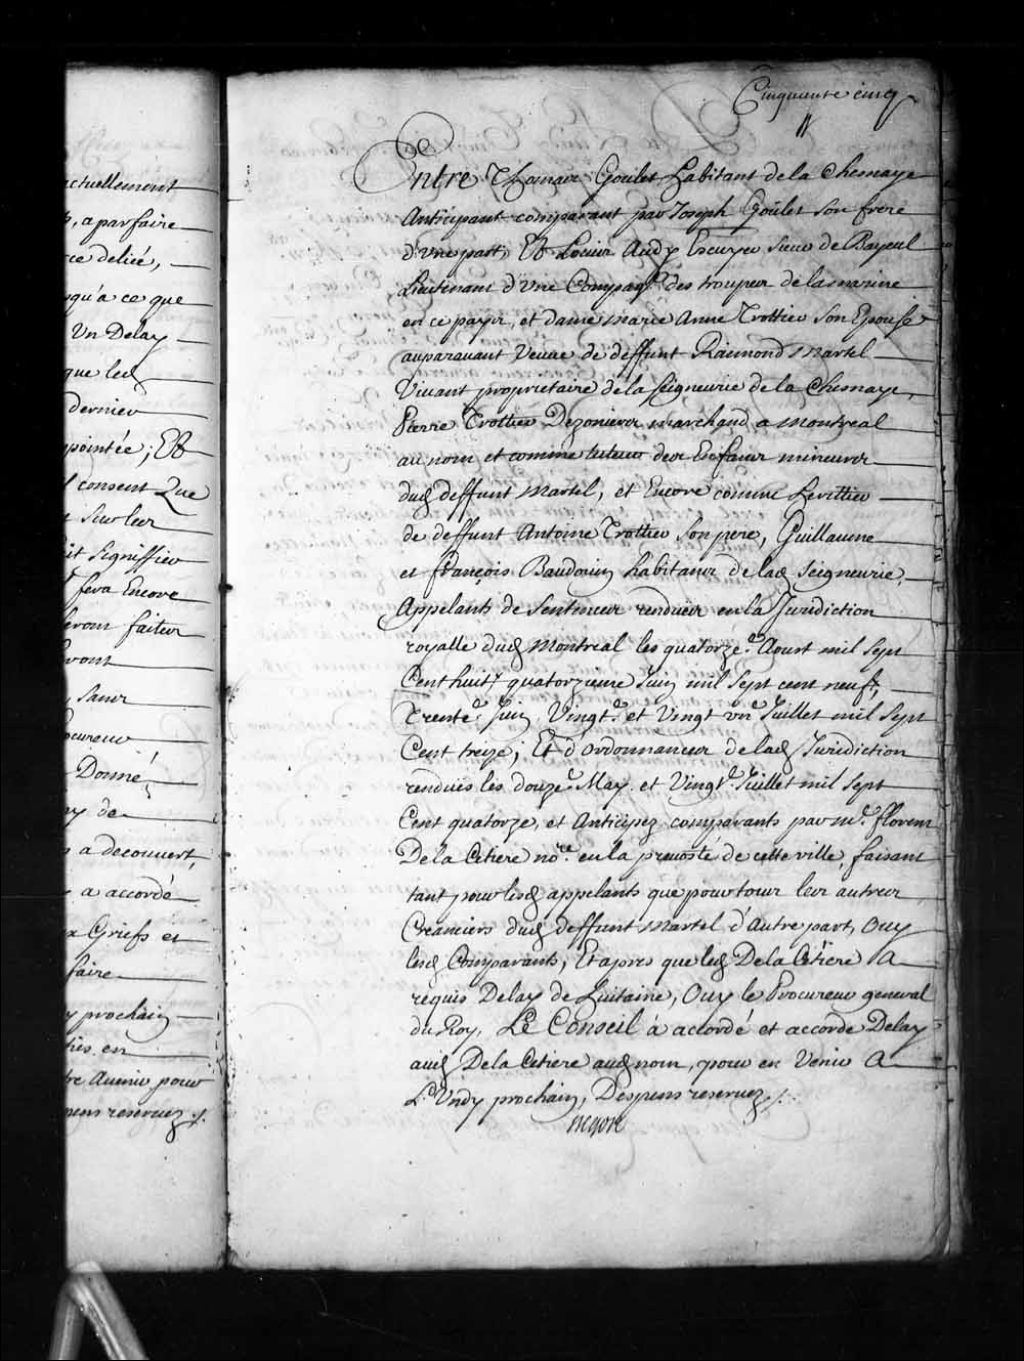 ctuellement
, a parfaire
ce deliée,
squ'a ce que
Un Delay
que led
dernier
pointée; Et
consent Que
sur leur
it signiffier
sera Encore
eront faites
ront
, sans
ocureur
Donné,
ay de
a decouvert,
a accordé
x Griefs et
faire
y prochain
ties en
tre avenir pour
pens reservez ./.
Cinquante cinq
Entre Thomas Goulet habitant de la chesnaye
Anticipant comparant par Joseph Goulet son frere
d'Une part, Et Louis Audy Escuyer Sieur de Bayeul
Lieutenant d'Une Compag.e des troupes de la marine
en ce payis, et dame marie Anne Trottier son Epouse
auparavant veuve de deffunt Raimond Martel
Vivant proprietaire de la seigneurie de la Chesnaye,
Pierre Trottier Dezoniers marchand a Montreal
au nom et comme tuteur des Enfans mineurs
dud deffunt Martel, et Encore comme heritier
de deffunt Antoine Trottier son pere, Guillaume
et françois Baudouin habitans de lad Seigneurie,
Appelants de Sentences rendues en la Juridiction
royalle dud Montreal les quatorze.e Aoust mil sept
Cent huit, quatorzieme Juin mil sept cent neuf,
Trente.e Juin Vingt.e et Vingt un.e Juillet mil sept
Cent treize; Et d'ordonnances de lad Juridiction
rendues les douze.e May et Vingt.e Juillet mil sept
Cent quatorze, et Anticipez comparants par m.e florent
De la Cetiere no.re en la prevosté de cette ville, faisant
tant pour lesd appelants que pour tous les autres
Creanciers dud deffunt Martel d'Autre part, Ouy
lesd Comparants, Et apres que led De la Cetiere A
requis Delay de huitaine, Ouy le Procureur general
du Roy, Le Conseil à accordé et accorde Delay
aud De la Cetiere aud nom, pour en Venir A
L'Undy prochain, Despens reservez ./.
Begon